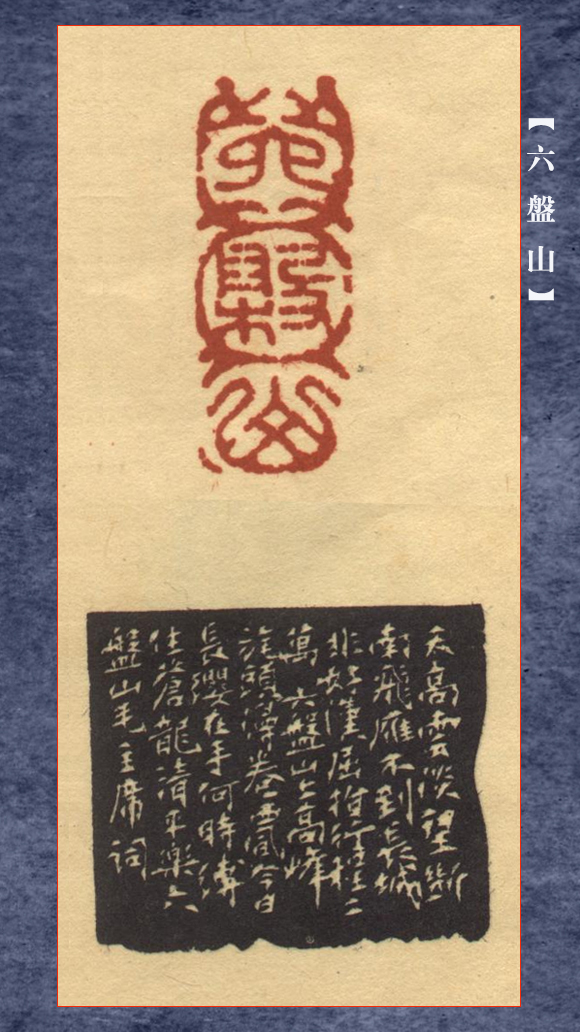 【六盤山】
六盤山
天高雲淡望斷
南飛雁不到長城
非好漢屈指行程二
萬六盤山上高峰
旄頭漫卷西風今日
長纓在手何時縛
住蒼龍清平樂六
盤山毛主席詞